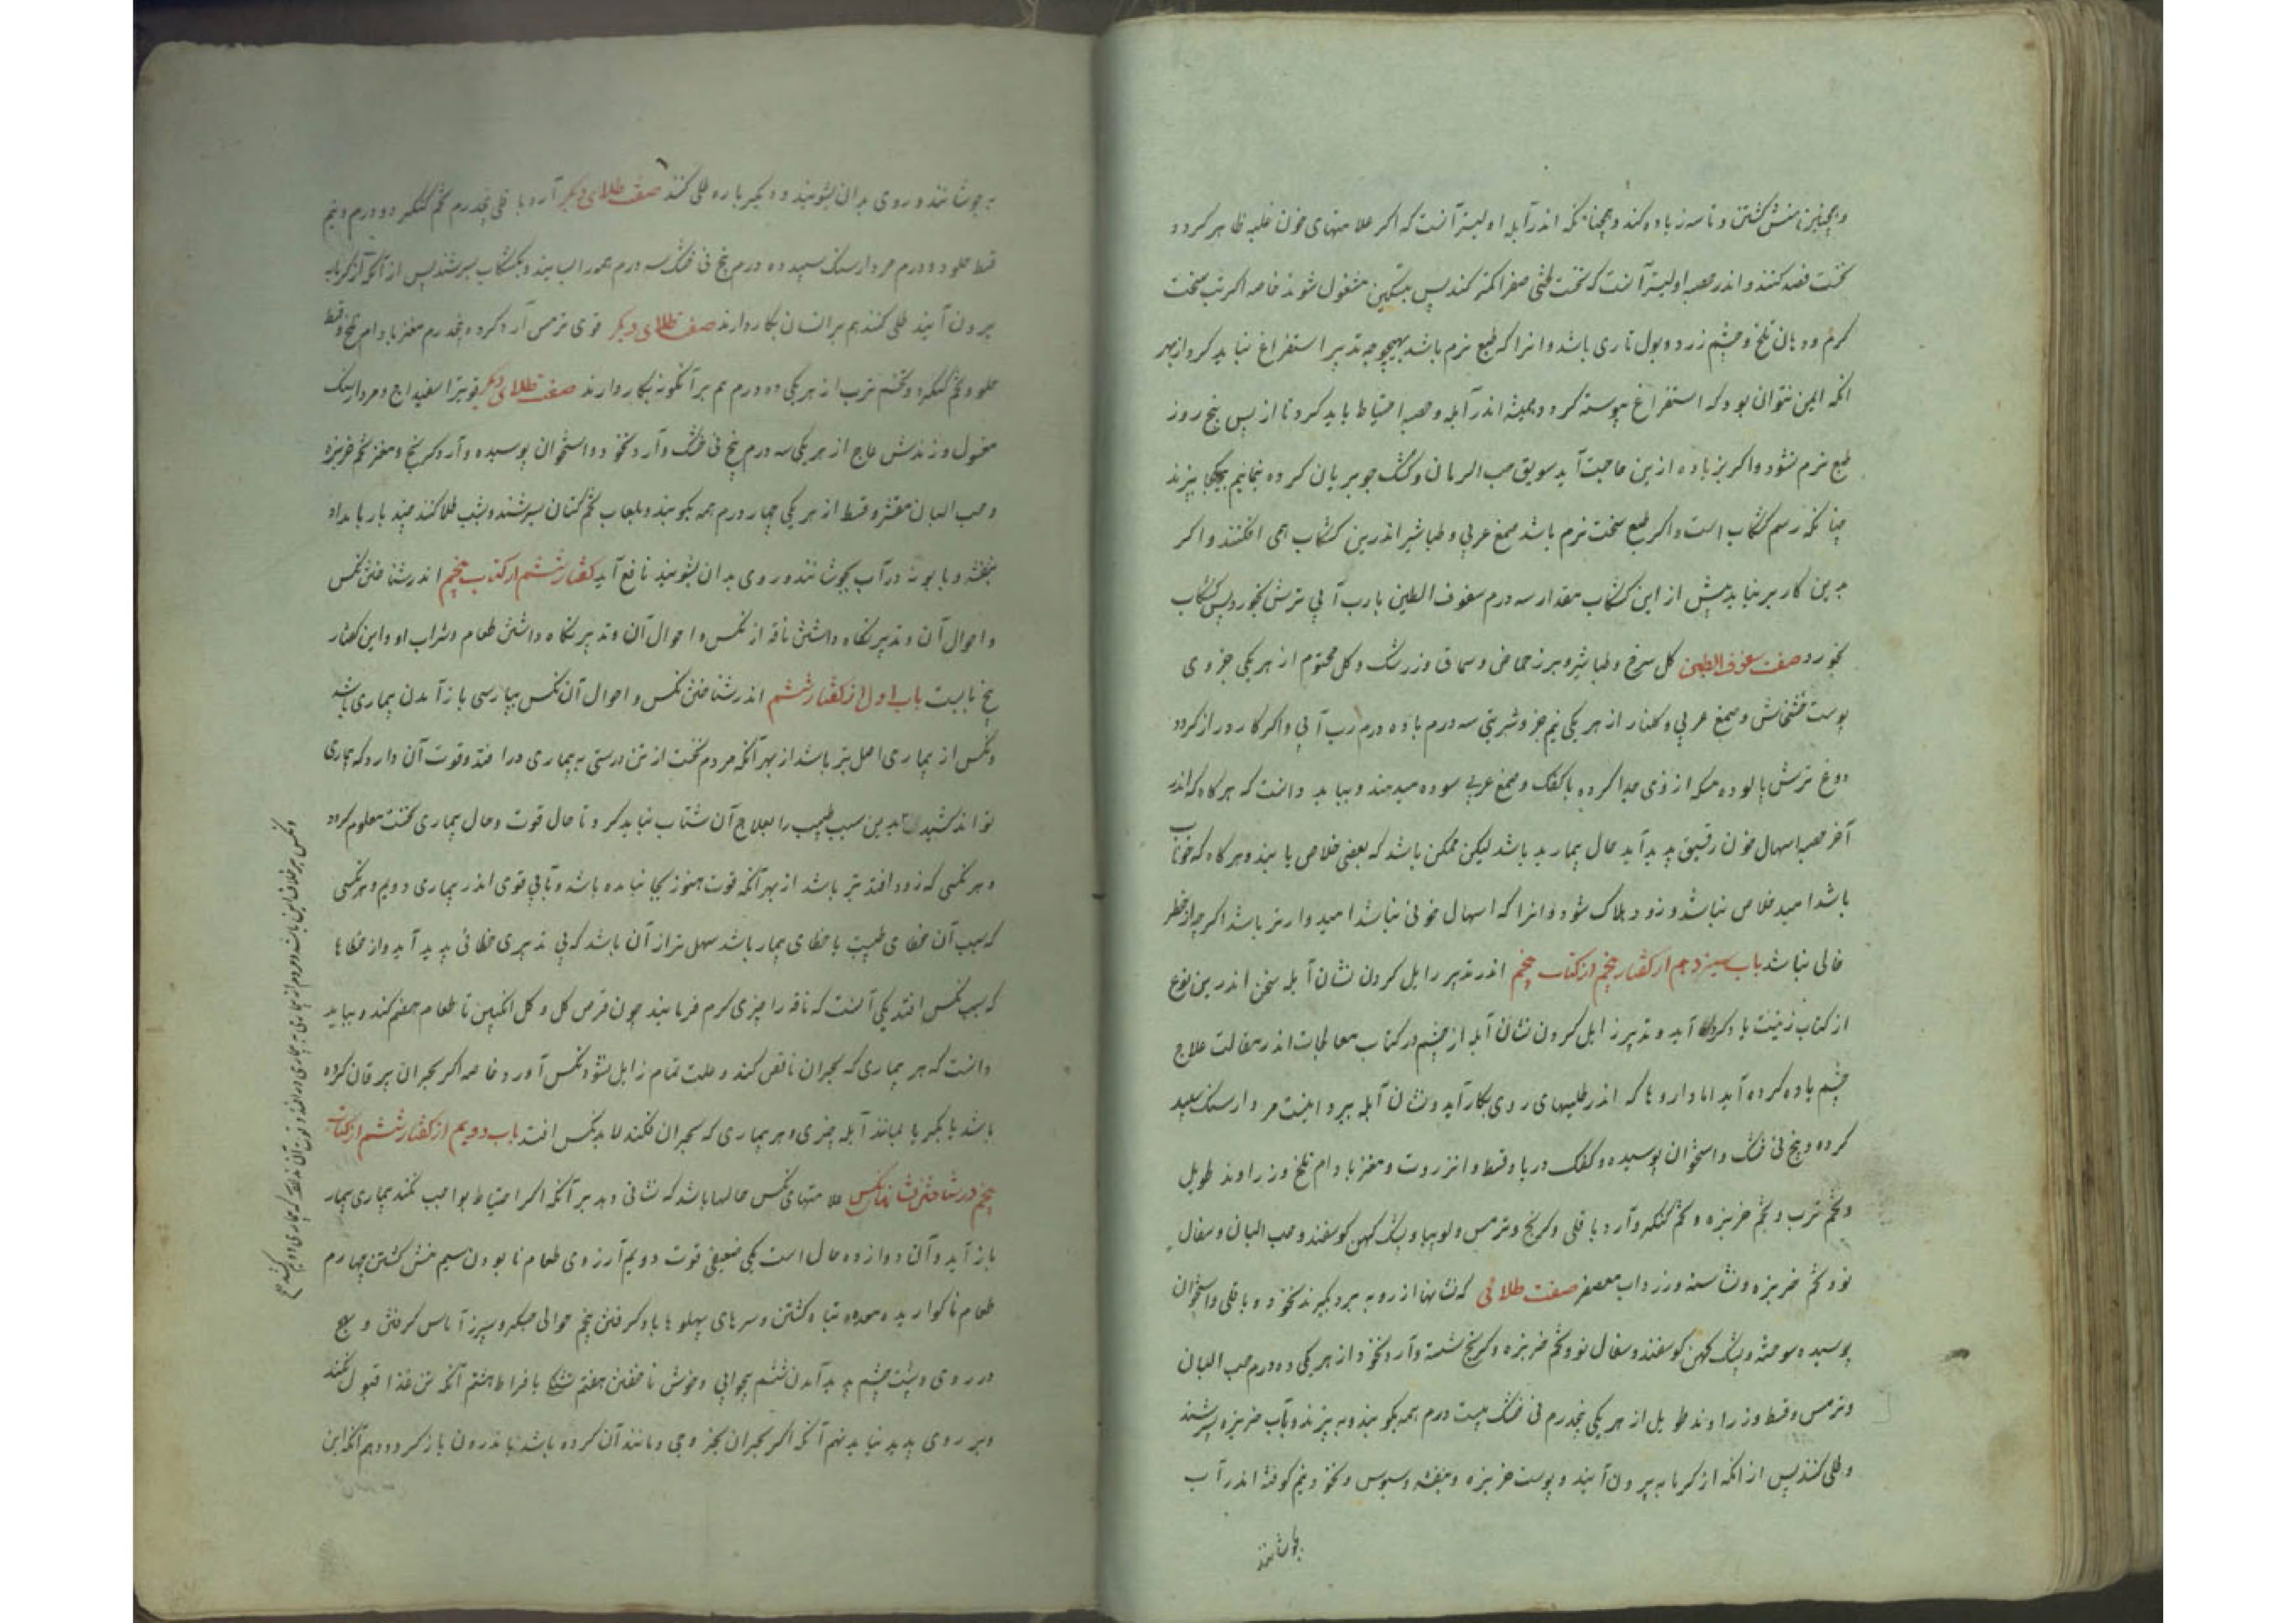 وهمچنین منش گشتن و تاسه زیاده کند و همچنانکه اندر آبله اولیتر آنست که اگر علامتهای خون غلبه ظاهر گردد
نخست فصد کنند و اندر حصبه اولیتر آنست که نخست لختی صفرا کمتر کنند پس بتسکین مشغول شوند خاصه اگر تب سخت
گرم و دهان تلخ و چشم زرد و بول ناری باشد و انرا که طبع نرم باشد بهیچوجه تدبیر استفراغ نباید کرد از بهر
انکه ایمن نتوان بود که استفراغ پیوسته گردد و همیشه اندر آبله و حصبه احتیاط باید کرد تا از پس پنج روز
طبع نرم نشود و اگر بزیاده ازین حاجت آید سویق حب الرمان و کشک جو بریان کرده بنمانیم بیکجا بپزند
چنانکه رسم کشکاب است و اگر طبع سخت نرم باشد صمغ عربی و طباشیر اندرین کشکاب همی افکنند و اگر
بدین کار برنیاید پیش از این کشکاب مقدار سه درم سفوف الطین با رب آبی ترش بخورد پس کشکاب
بخورد صفت سفوف الطین گل سرخ و طباشیر و بزر حماض و سماق و زرشک و گل مختوم از هر یکی جزوی
پوست خشخاش و صمغ عربی و گلنار از هر یکی نیم جزو شربتی سه درم با ده درم رب آبی و اگر کار دراز گردد
دوغ ترش پالوده مسکه از وی جدا کرده با کعک و صمغ عربی سوده میدهند و بباید دانست که هرگاه که اندر
آخر حصبه اسهال خون رقیق پدید آید حال بیمار بد باشد لیکن ممکن باشد که بعضی خلاص یابند و هرگاه که خوناب
باشد امید خلاص نباشد و زود هلاک شود و انرا که اسهال خونی نباشد امیدوارتر باشد اگر چه از خطر
خالی نباشد باب سیزدهم از گفتار پنجم از کتاب پنجم اندر تدبیر زایل کردن نشان آبله سخن اندرین نوع
از کتاب زینت یاد کرده آید و تدبیر زایل کردن نشان آبله از چشم در کتاب معالجات اندر مقالت علاج
چشم یاده کرده آید اما داروها که اندر طلیهای روی بکار آید و نشان آبله ببرد اینست مردارسنگ سپید
کرده و بیخ نی خشک و استخوان پوسیده و کفک دریا و قسط و انزروت و مغز بادام تلخ و زراوند طویل
و تخم ترب و تخم خربزه و تخم کنکر و آرد باقلی و کرنج و ترمس و لوبیا و پشک کهن گوسفند و حب البان و سفال
نو و تخم خربزه و نشاسته و زرداب معصفر صفت طلائی که نشانها از رو به برد بگیرند نخود و باقلی و استخوان
پوسیده سوخته و پشک کهن گوسفند و سفال نو و تخم خربزه و کرنج شسته و آرد نخود از هر یکی ده درم حب البان
و ترمس و قسط و زراوند طویل از هر یکی پنجدرم نی خشک بیست درم همه بکوبند و به پزند و بآب خربزه بسرشند
و طلی کنند پس از انکه از گرمابه بیرون آیند و پوست خربزه و بنفشه و سبوس و نخود نیم کوفته اندر آب
بجوشانند
بجوشانند و روی بدان بشویند و دیگر باره طلی کنند صفت طلای دیگر آرد باقلی پنجدرم تخم کنکر دو درم و نیم
قسط حلو دو درم مردارسنگ سپید ده درم بیخ نی خشک سه درم همه را بسایند و بکشکاب بسرشند پس از آنکه از گرمابه
بیرون آیند طلی کنند هم بر انسان بکار دارند صفت طلای دیگر قوی ترمس آرد کرده پنجدرم مغز بادام تلخ و قسط
حلو و تخم کنکر و تخم ترب از هر یکی ده درم هم بر آنگونه بکار دارند صفت طلای دیگر قویتر اسفیداج و مردارسنگ
مغسول و زندش عاج از هر یکی سه درم بیخ نی خشک و آرد نخود و استخوان پوسیده و آرد کرنج و مغز تخم خربزه
و حب البان مقشر و قسط از هر یکی چهار درم همه بکوبند و بلعاب تخم کتان بسرشند و بشب طلا کنند چند بار بامداد
بنفشه و بابونه در آب بجوشانند و روی بدان بشویند نافع آید گفتار ششم از کتاب پنجم اندر شناختن نکس
و احوال آن و تدبیر نگاه داشتن ناقه از نکس و احوال آن و تدبیر نگاه داشتن طعام و شراب او و این گفتار
پنج بابست باب اول از گفتار ششم اندر شناختن نکس و احوال آن نکس بپارسی باز آمدن بیماری باشد
و نکس از بیماری اصل بتر باشد از بهر آنکه مردم نخست از تن درستی به بیماری در افتد و قوت آن دارد که بیماری
تواند کشید بدین سبب طبیب را بعلاج آن شتاب نباید کرد تا حال قوت و حال بیماری نخست معلوم گردد
و هر نکسی که زود افتد بتر باشد از بهر آنکه قوت هنوز بجا نیامده باشد و تابی قوی اندر بیماری دویم و هر نکسی
که سبب آن خطای طبیب یا خطای بیمار باشد سهل تر از آن باشد که بی تدبیری خطائی پدید آید و از خطاها
که سبب نکس افتد یکی آنست که ناقه را چیزی گرم فرمایند چون قرص گل و گل انگبین تا طعام هضم کند و بباید
دانست که هر بیماری که بحران ناقص کند و علت تمام زایل نشود نکس آورد خاصه اگر بحران بیرقان کرده
باشد یا بکر یا بمانند آبله چیزی و هر بیماری که بحران نکند لابد نکس افتد باب دویم از گفتار ششم از کتاب
پنجم در شناختن نشانهای نکس علامتهای نکس حالها باشد که نشانی دهد بر آنکه اگر احتیاط بواجب نکنند بیماری بیمار
باز آید و آن دوازده حال است یکی ضعیفی قوت دویم آرزوی طعام نابودن سیم منش گشتن چهارم
طعام ناگواریدن و معده تباه گشتن و سرهای پهلوها باد گرفتن پنجم حوالی جگر و سپرز آماس گرفتن و تهبج
در روی و پشت چشم پدید آمدن ششم بیخوابی و خوش ناخفتن هفتم تشنگی با فراط هشتم آنکه تن غذا قبول نکند
و بر روی پدید نیاید نهم آنکه اگر بحران بخروجی و مانند آن کرده باشد باندرون باز گردد دهم آنکه این